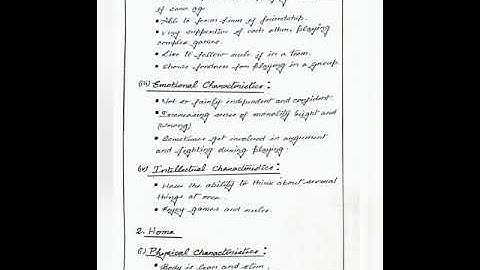 of same age.
• Able to form firm of friendship.
• Very supportive of each other, playing
complex games.
• Like to follow rule if in a team.
• Shows fondness for playing in a group
(iii) Emotional Characteristics :
• Not or fairly independent and confident.
• Increasing sense of morality (right and
wrong)
• Sometimes get involved in argument
and fighting during playing.
(iv) Intellectual Characteristics :
• Have the ability to think about several
things at once.
• Enjoy games and rules.
2. Home
(i) Physical Characteristics :
• Body is lean and slim.